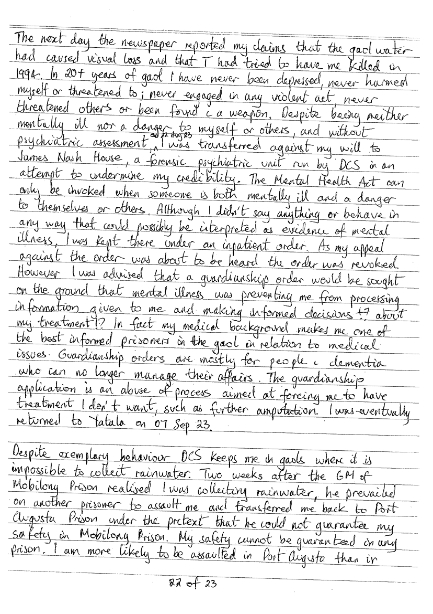 The next day the newspaper reported my claims that the gaol water
had caused visual loss and that T had tried to have me killed in
1994. In 20+ years of gaol I have never been depressed, never harmed
myself or threatened to; never engaged in any violent act, never
threatened others or been found c a weapon. Despite being neither
mentally ill nor a danger to myself or others, and without
psychiatric assessment, I was transferred against my will to
James Nash House, a forensic psychiatric unit run by DCS in an
attempt to undermine my credibility. The Mental Health Act can
only be invoked when someone is both mentally ill and a danger
to themselves or others. Although I didn't say anything or behave in
any way that could possibly be interpreted as evidence of mental
illness, I was kept there under an inpatient order. As my appeal
against the order was about to be heard the order was revoked.
However I was advised that a guardianship order would be sought
on the ground that mental illness was preventing me from processing
information given to me and making informed decisions !? about
my treatment!? In fact my medical background makes me one of
the best informed prisoners in the gaol in relation to medical
issues. Guardianship orders are mostly for people c dementia
who can no longer manage their affairs. The guardianship
application is an abuse of process aimed at forcing me to have
treatment I don't want, such as further amputation. I was eventually
returned to Yatala on 07 Sep 23.
Despite exemplary behaviour DCS keeps me in gaols where it is
impossible to collect rainwater. Two weeks after the GM of
Mobilong Prison realised I was collecting rainwater, he prevailed
on another prisoner to assault me and transferred me back to Port
Augusta Prison under the pretext that he could not guarantee my
safety in Mobilong Prison. My safety cannot be guaranteed in any
prison. I am more likely to be assaulted in Port Augusta than in
22 of 23